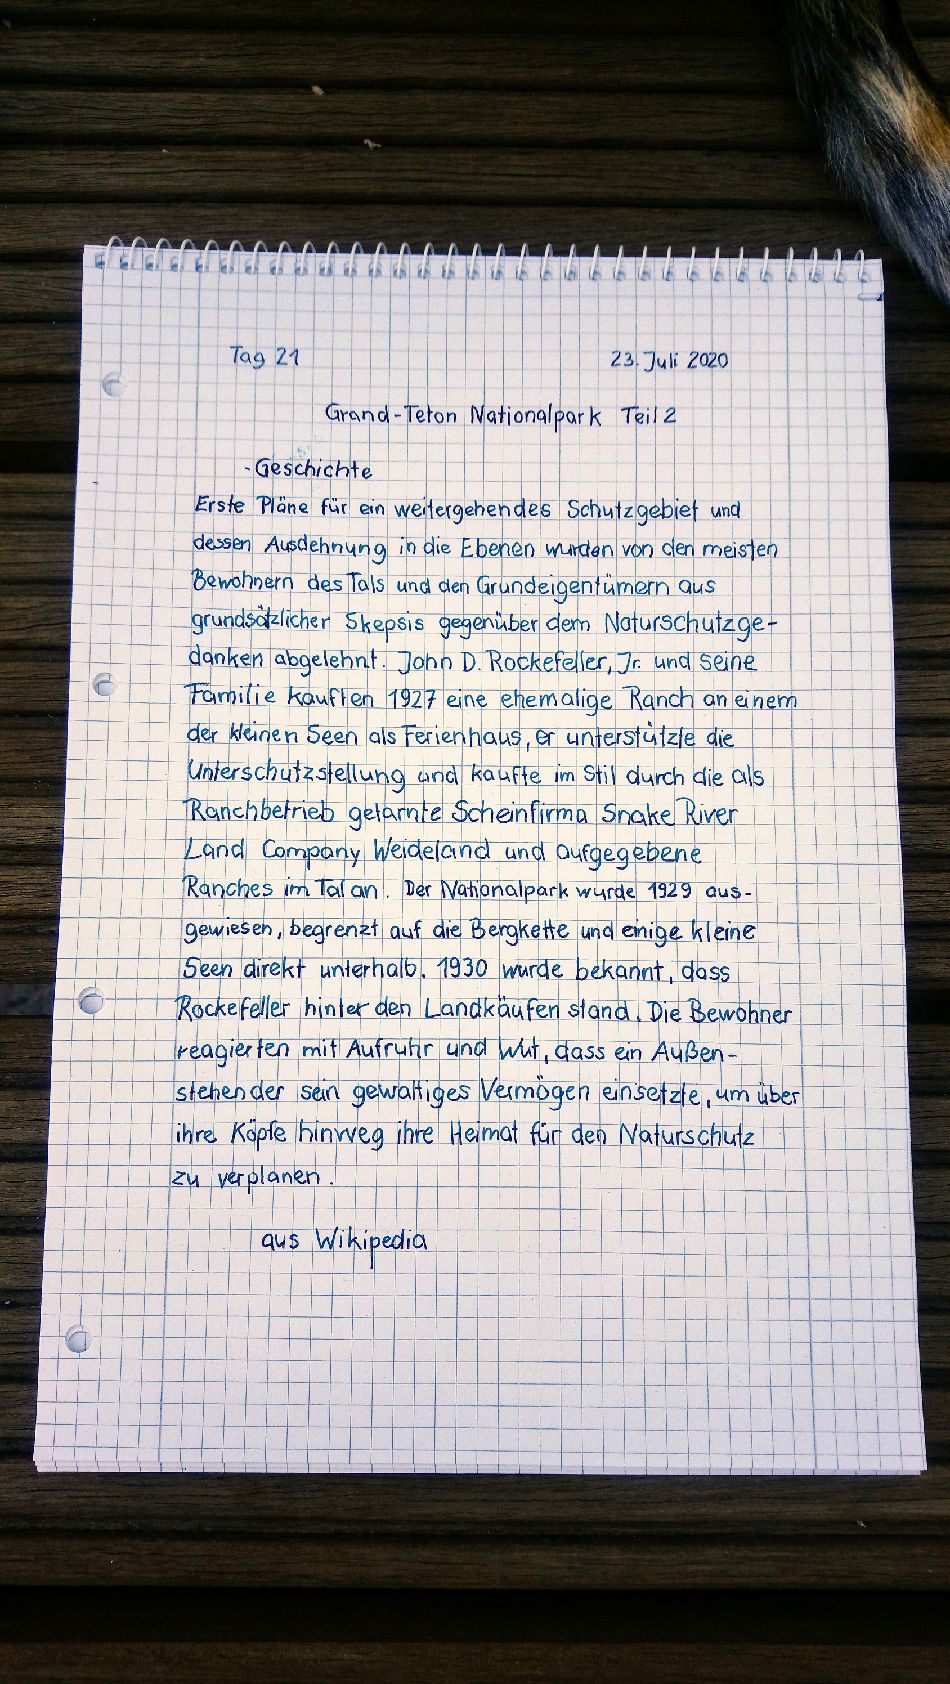 Tag 21
23. Juli 2020
Grand-Teton Nationalpark Teil 2
- Geschichte
Erste Pläne für ein weitergehendes Schutzgebiet und
dessen Ausdehnung in die Ebenen wurden von den meisten
Bewohnern des Tals und den Grundeigentümern aus
grundsätzlicher Skepsis gegenüber dem Naturschutzge-
danken abgelehnt. John D. Rockefeller, Jr. und seine
Familie kauften 1927 eine ehemalige Ranch an einem
der kleinen Seen als Ferienhaus, er unterstützte die
Unterschutzstellung und kaufte im Stil durch die als
Ranchbetrieb getarnte Scheinfirma Snake River
Land Company Weideland und aufgegebene
Ranches im Tal an. Der Nationalpark wurde 1929 aus-
gewiesen, begrenzt auf die Bergkette und einige kleine
Seen direkt unterhalb. 1930 wurde bekannt, dass
Rockefeller hinter den Landkäufen stand. Die Bewohner
reagierten mit Aufruhr und Wut, dass ein Außen-
stehender sein gewaltiges Vermögen einsetzte, um über
ihre Köpfe hinweg ihre Heimat für den Naturschutz
zu verplanen.
aus Wikipedia